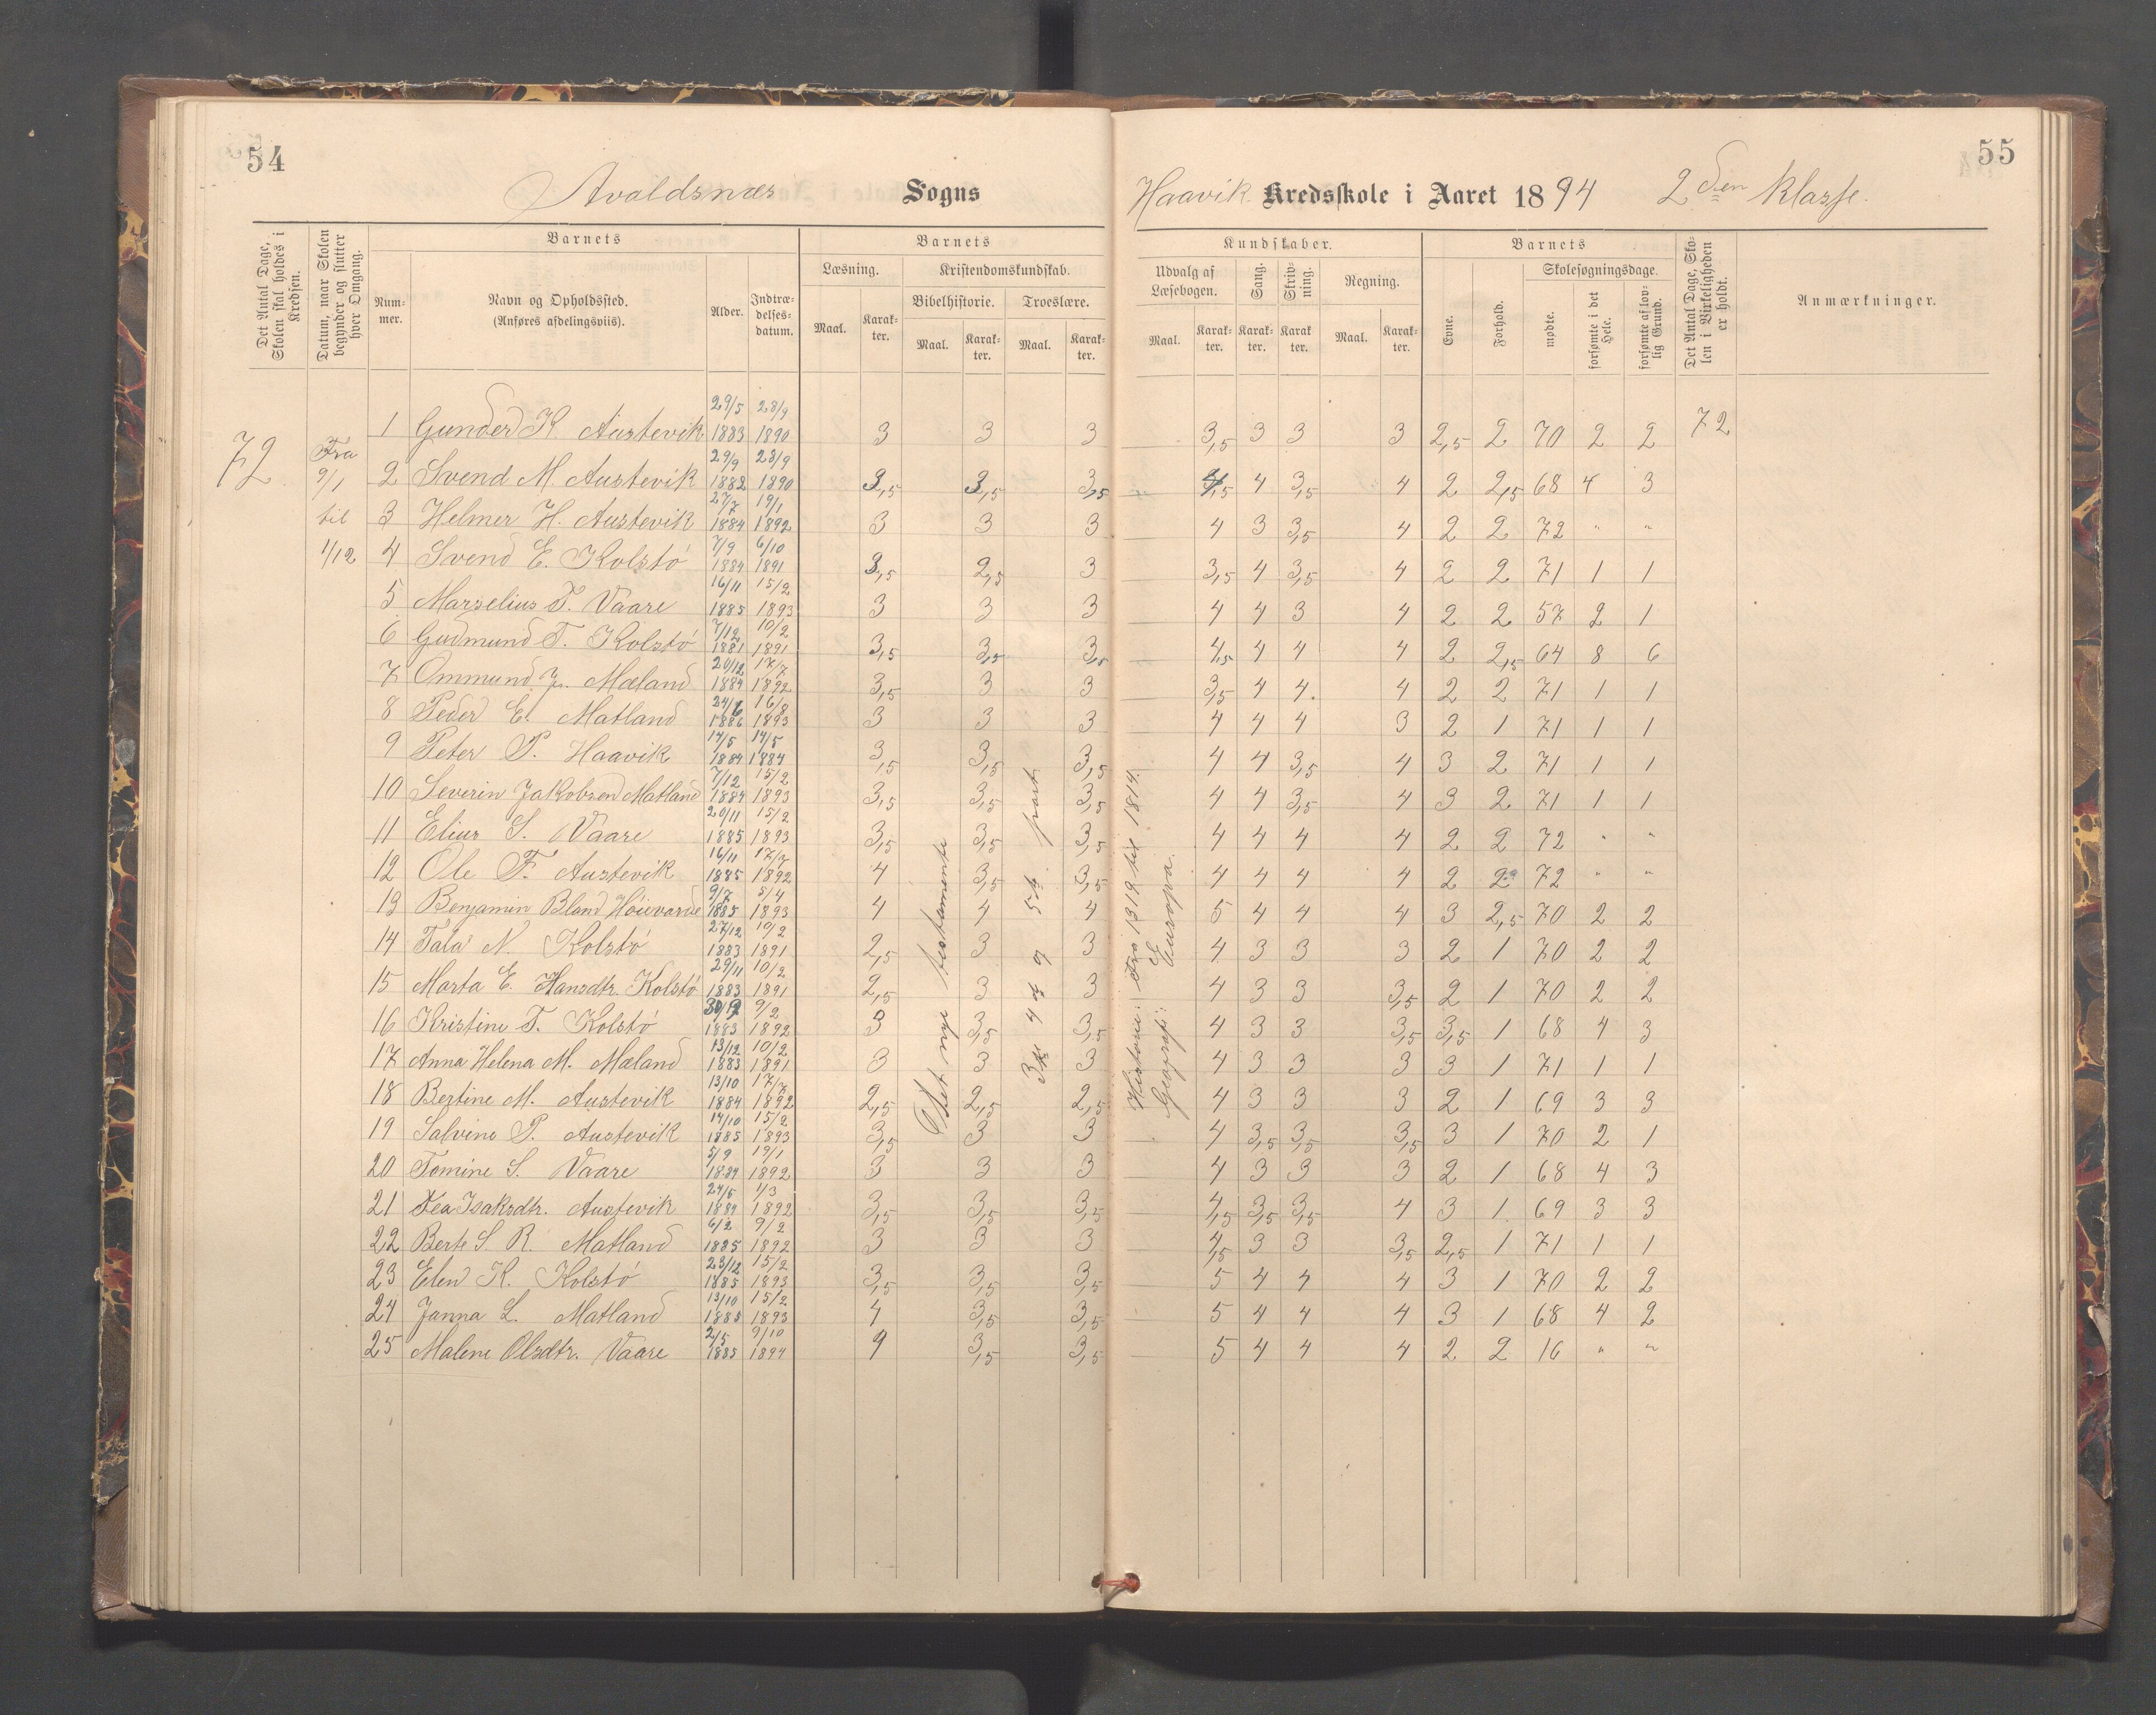 54
Avaldsnæs Sogns
Haavik Kredsskole i Aaret 1894 2den Klasse.
55
Det Antal Dage, Skolen skal holdes i Kredsen.
Datum, naar Skolen begynder og slutter hver Omgang.
Barnets
Nummer.
Navn og Opholdssted. (Anføres afdelingsviis).
Alder.
Indtrædelsesdatum.
Barnets
Læsning.
Maal. Karakter.
Kristendomskundskab.
Bibelhistorie.
Maal. Karakter.
Troeslære.
Maal. Karakter.
Kundskaber.
Udvalg af Læsebogen.
Maal. Karakter.
Sang. Karakter.
Skrivning. Karakter
Regning.
Maal. Karakter.
Barnets
Evne.
Forhold.
Skolesøgningsdage.
mødte.
forsømte i det Hele.
forsømte af lovlig Grund.
Det Antal Dage, Skolen i Virkeligheden er holdt.
Anmærkninger.
72
Fra 9/1 til 1/12
1 Gunder K. Austevik 29/5 1883 28/9 1890 3 3 3 3,5 3 3 3 2,5 2 70 2 2 72
2 Svend M. Austevik 29/9 1882 28/9 1890 3,5 3,5 3,5 4,5 4 3,5 4 2 2,5 68 4 3
3 Helmer H. Austevik 27/7 1884 19/1 1892 3 3 3 4 3 3,5 4 2 2 72 " "
4 Svend E. Kolstö 7/9 1884 6/10 1891 3,5 2,5 3 3,5 4 3,5 4 2 2 71 1 1
5 Marselius T. Vaare 16/11 1885 15/2 1893 3 3 3 4 4 3 4 2 2 57 2 1
6 Gudmund T. Kolstö 7/12 1881 10/2 1891 3,5 3,5 3,5 4,5 4 4 4 2 2,5 64 8 6
7 Ommund J. Mæland 20/12 1884 17/7 1892 3,5 3 3 3,5 4 4. 4 2 2 71 1 1
8 Peder E. Matland 24/6 1886 16/8 1893 3 3 3 4 4 4 3 2 1 71 1 1
9 Peter P. Haavik 14/5 1884 14/5 1884 3,5 3,5 3,5 4 4 3,5 4 3 2 71 1 1
10 Severin Jakobsen Matland 7/12 1884 15/2 1893 3,5 3,5 3,5 4 4 3,5 4 3 2 71 1 1
11 Elius S. Vaare 20/11 1885 15/2 1893 3,5 3,5 3,5 4 4 4 4 2 2 72 " "
12 Ole F. Austevik 16/11 1885 17/7 1892 4 3,5 3,5 4 4 4 4 2 2 72 " "
13 Benjamin Bland Höievarde 9/7 1885 5/4 1893 4 4 4 5 4 4 4 3 2,5 70 2 2
14 Tala N. Kolstö 27/12 1883 10/2 1891 2,5 3 3 4 3 3 3 2 1 70 2 2
15 Marta E. Hansdtr. Kolstö 29/11 1883 10/2 1891 2,5 3 3 4 3 3 3,5 2 1 70 2 2
16 Kristine T. Kolstö 30/9 1883 9/2 1892 3 3,5 3,5 4 3 3 3,5 3,5 1 68 4 3
17 Anna Helena M. Mæland 13/12 1883 10/2 1891 3 3 3 4 3 3 3 3 1 71 1 1
18 Bertine M. Austevik 13/10 1884 17/7 1892 2,5 2,5 2,5 4 3 3 3 2 1 69 3 3
19 Salvine P. Austevik 14/10 1885 15/2 1893 3,5 3 3 4 3,5 3,5 3,5 3 1 70 2 1
20 Tomine S. Vaare 5/9 1884 19/1 1892 3 3 3 4 3 3 3 2 1 68 4 3
21 Tea Isaksdtr. Austevik 24/5 1884 1/3 1892 3,5 3,5 3,5 4,5 3,5 3,5 4 3 1 69 3 3
22 Berte S R. Matland 6/2 1885 9/2 1892 3 3 3 4,5 3 3 3,5 2,5 1 71 1 1
23 Elen K. Kolstö 23/12 1885 15/2 1893 3,5 3,5 3,5 5 4 4 4 3 1 70 2 2
24 Janna L. Matland 13/10 1885 15/2 1893 4 3,5 3,5 5 4 4 4 3 1 68 4 2
25 Malene Olsdtr. Vaare 2/5 1885 9/10 1894 4 3,5 3,5 5 4 4 4 2 2 16 " "
Det nye testamente
3die 4de og 5te part
Historie: Fra 1319 til 1814.
Geografi: Europa.